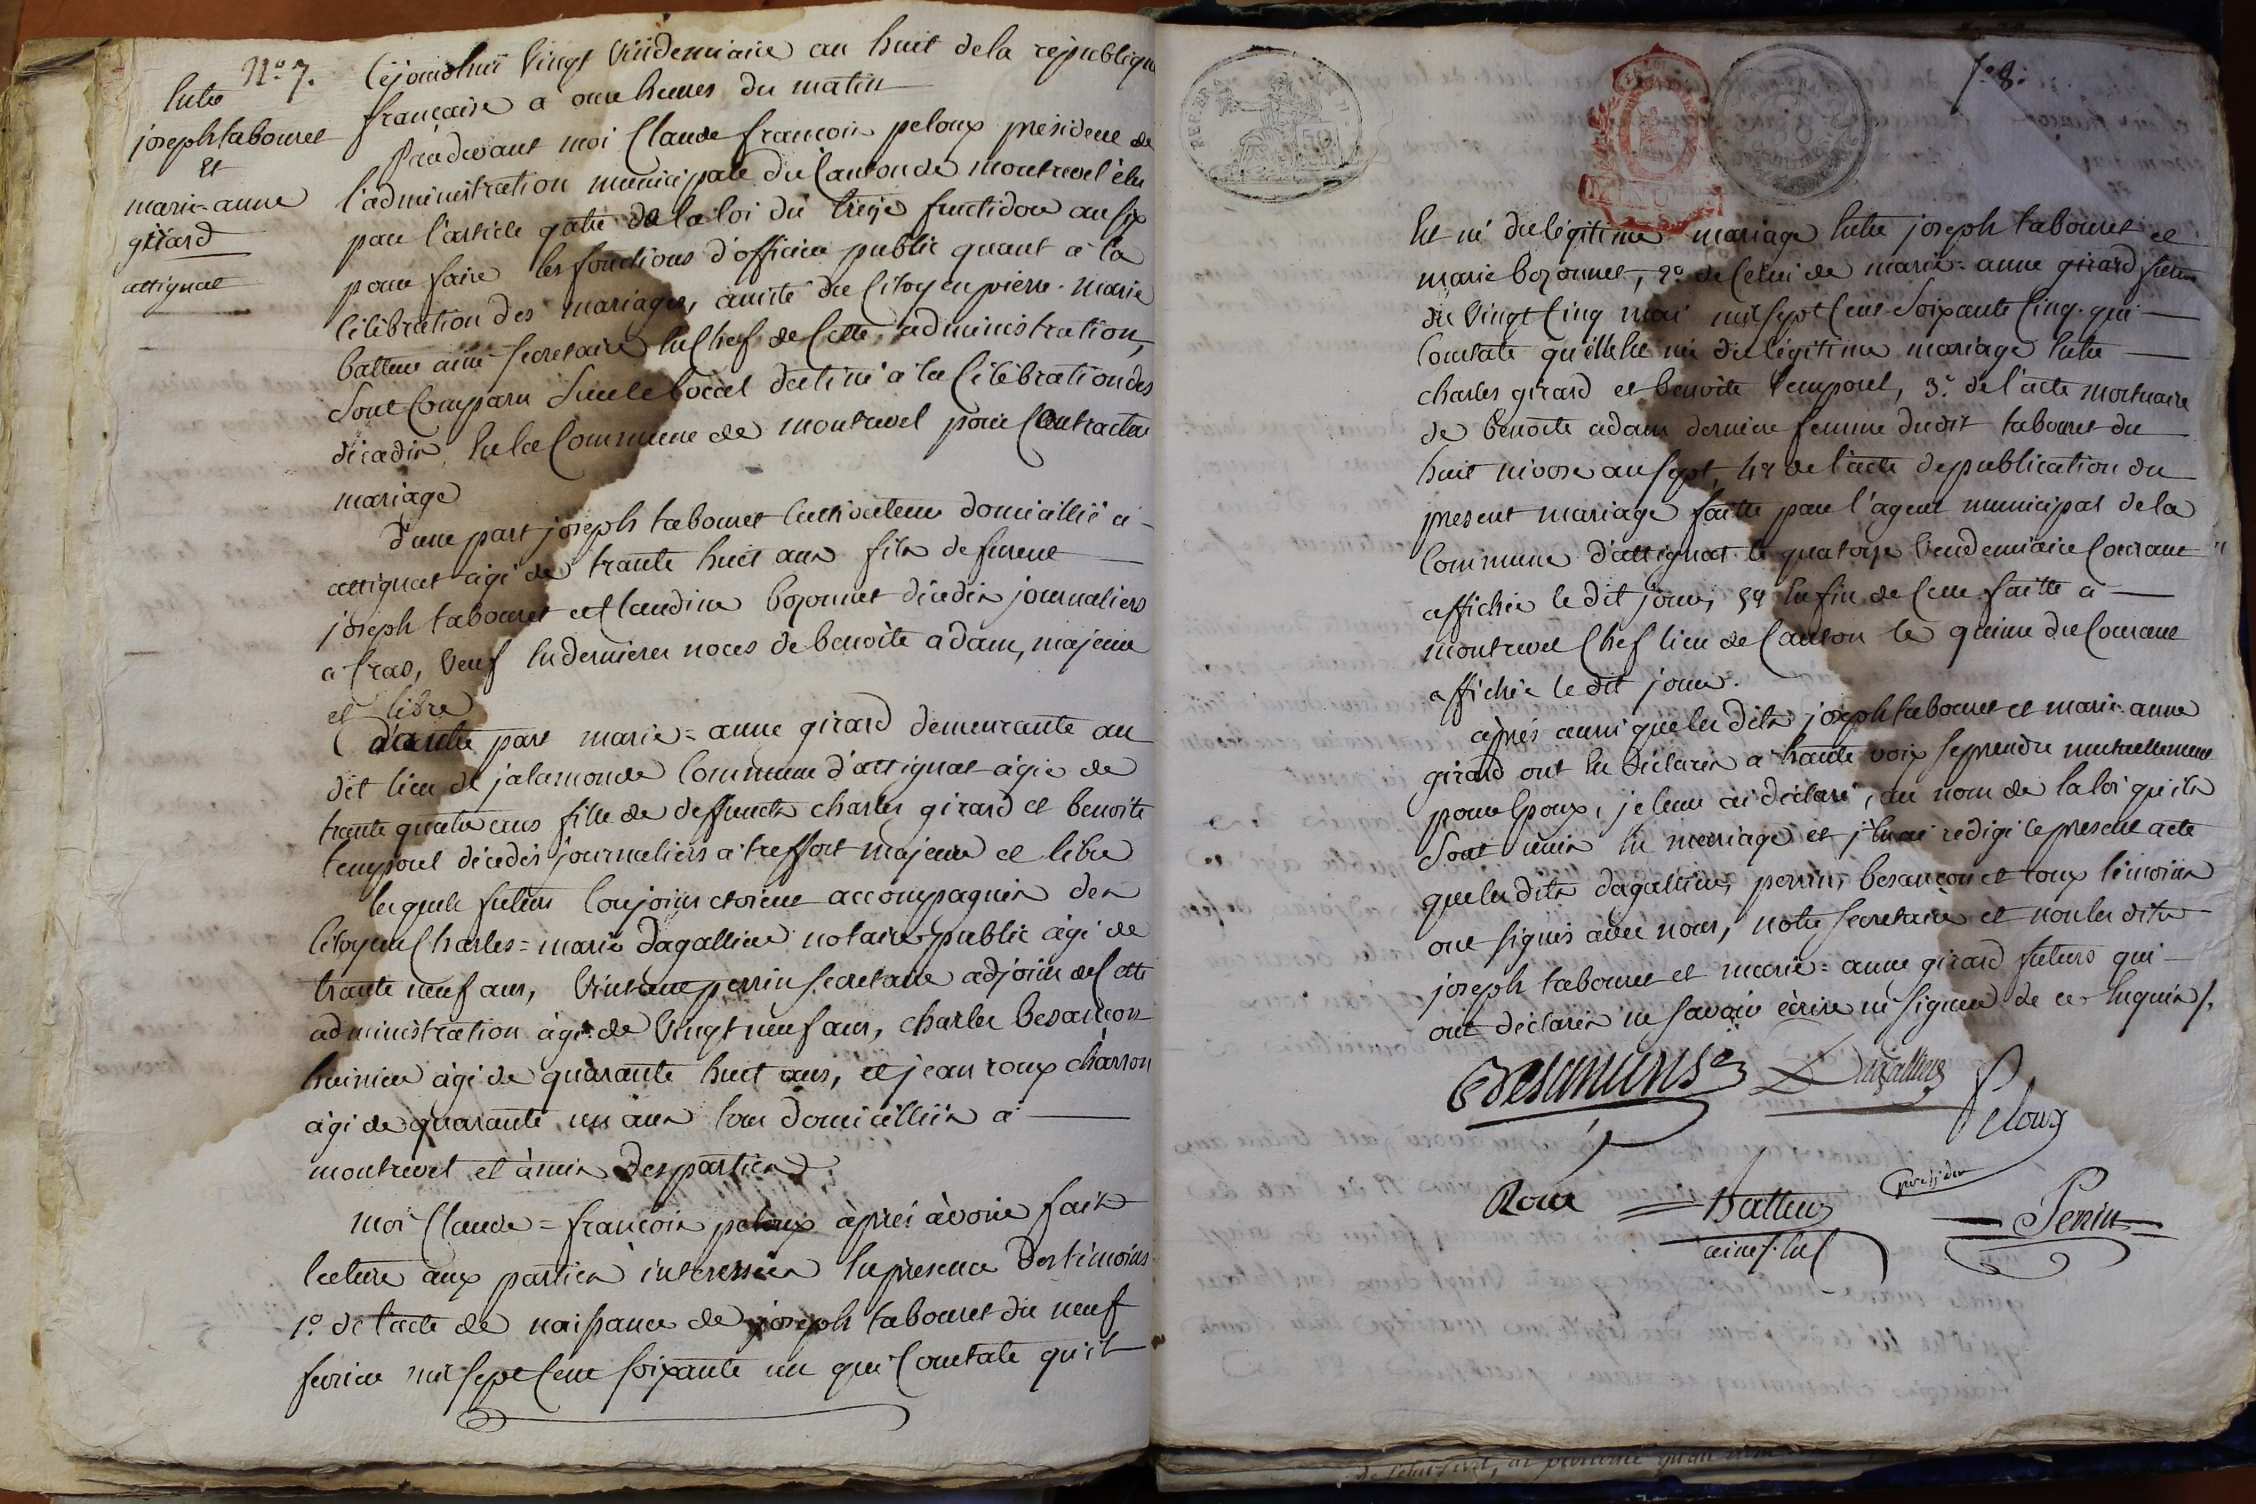 N.º 7.
Entre
joseph tabouret
et
marie-anne
girard
attignat
Cejourdhuï vingt vendemiaire an huit de la republique
française a onze heures du matin
Pardevant moi Claude françois peloux président de
l'administration municipale du Canton de montrevel élu
par l'article quatre de la loi du treize fructidor an six
pour faire les fonctions d'officier public quant à la
célébration des mariages, assisté du Citoyen pierre-marie
batteur ainé secretaire en Chef de Cette administration,
Sont Comparu Sur le local destiné à la Célébration des
décadis, en la Commune de montrevel pour Contracter
mariage
d'une part joseph tabouret Cultivateur domicillié à
attignat âgé de trante huit ans fils de furent
joseph tabouret et Claudine bozonnet décédés journaliers
a Cras, veuf en dernieres noces de benoite adam, majeur
et libre
d'autre part marie=anne girard demeurante au
dit lieu de jalamonde Commune d'attignat âgée de
trante quatre ans fille de deffuncts charles girard et benoite
temporel décédés journaliers à treffort majeure et libre
lesquels futurs Conjoins etoient accompagnés des
Citoyens Charles=marie dagallier notaire public âgé de
trante neuf ans, Vincent perrin secretaire adjoint de Cette
administration âgé de Vingt neuf ans, charles besançon
huissier âgé de quarante huit ans, et jean roux charron
âgé de quarante un ans tous domicilliés à
montrevel et amis des parties
moi Claude=françois peloux après avoir fait
lecture aux parties interessées en presence des témoins
1.º de l'acte de naissance de joseph tabouret du neuf
fevrier mil sept Cent soixante un qui Constate qu'il
f.º 8.
REP. FR.
50
Est né du légitime mariage Entre joseph tabouret et
marie bozonnet, 2.º de Celui de marie=anne girard future
du vingt Cinq mai mil sept Cent Soixante Cinq. qui
Constate qu'elle Est née du légitime mariage Entre
charles girard et benoite temporel, 3.º de l'acte mortuaire
de benoite adam derniere femme dudit tabouret du
huit nivose an sept, 4.º de l'acte de publication du
present mariage faitte par l'agent municipal de la
Commune d'attignat le quatorze vendemiaire Courant
affichée le dit jour; 5.º Enfin de Celle faitte à
montrevel Chef lieu de Canton le quinze du Courant
affichée le dit jour.
après aussi que les dits joseph tabouret et marie-anne
girard ont Eu déclarés à haute voix se prendre mutuellement
pour Epoux, je leur ai déclaré, au nom de la loi qu'ils
Sont unis En mariage et j'en ai rédigé le present acte
que les dits dagallier, perrin, besançon et roux témoins
ont signés avec nous, notre secretaire et non les dits
joseph tabouret et marie=anne girard futurs qui
ont déclarés ne savoir écrire ni signer de ce Enquis /.
Dagallier
Peloux
president
Roux
Batteur
ainé s. en C
Perrin